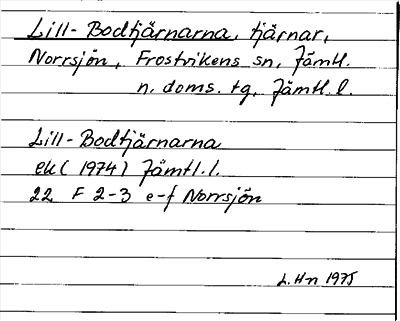 Lill-Bodtjärnarna, tjärnar,
Norrsjön, Frostvikens sn, Jämtl.
n. doms. tg, Jämtl.l.
Lill-Bodtjärnarna
ek (1974) Jämtl.l.
22 F 2-3 e-f Norrsjön
L.Hn 1975